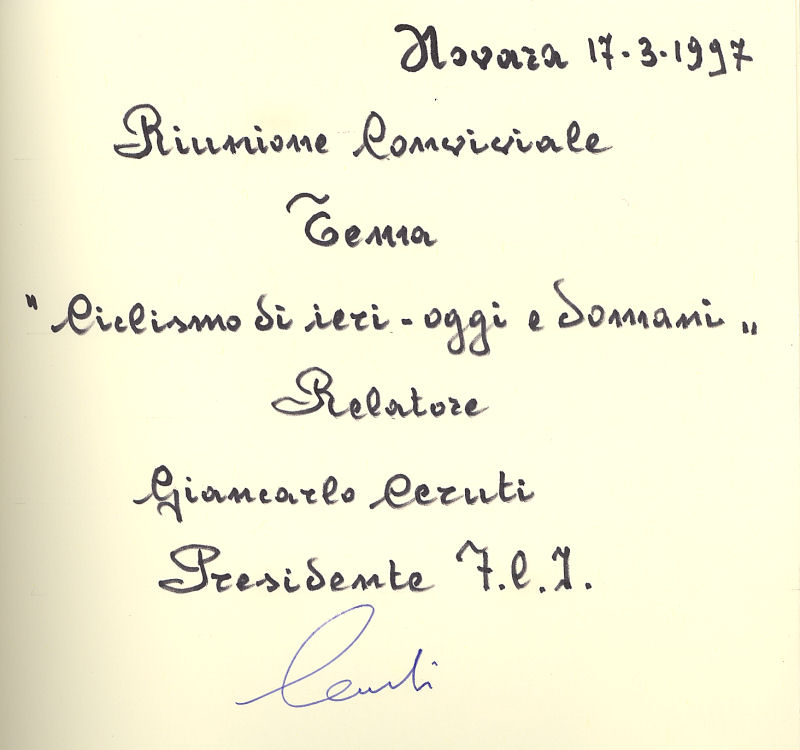 Novara 17-3-1997
Riunione Conviviale
Tema
" Ciclismo di ieri - oggi e domani „
Relatore
Giancarlo Ceruti
Presidente F.C.I.
Ceruti